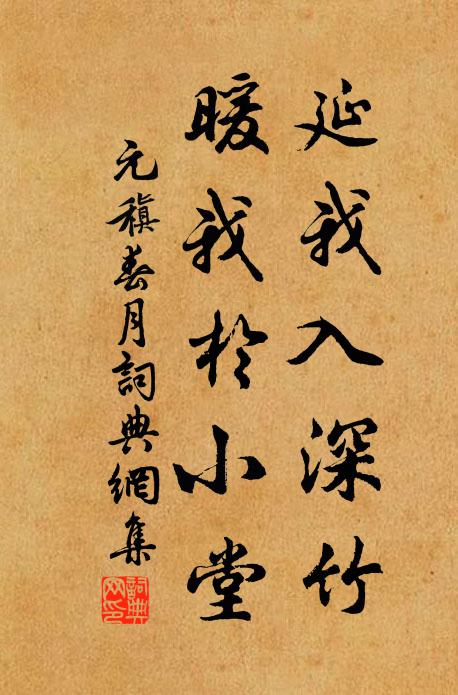 延我入深竹
暖我於小堂
元稹春月詞典網集
詞典
网印